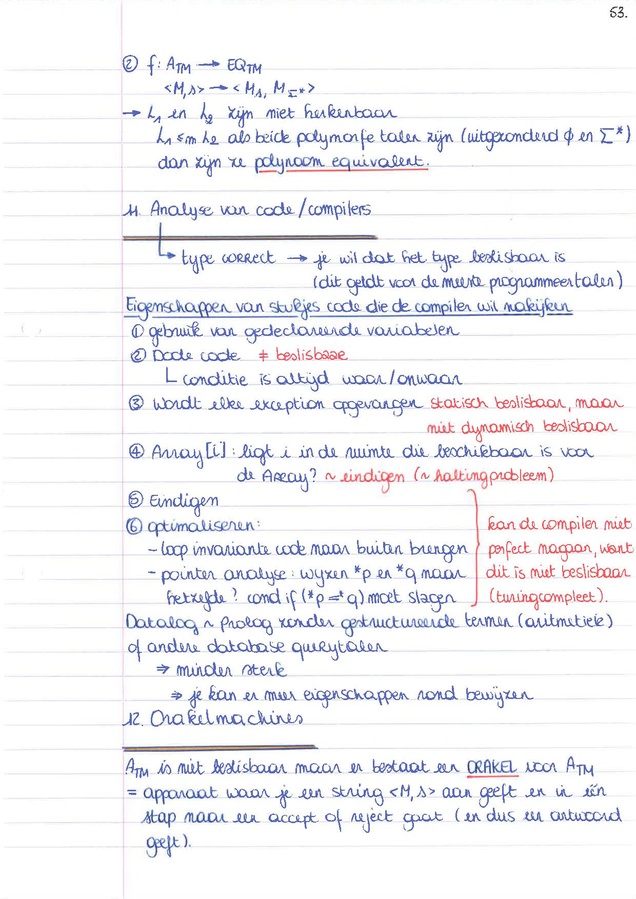 53.
② f: A_TM → EQ_TM
<M,s> → <M_s, M_Σ*>
→ L₁ en L₂ zijn niet herkenbaar
L₁ ≤m L₂ als beide polymorfe talen zijn (uitgezonderd ϕ en Σ*)
dan zijn ze polynoom equivalent.
11. Analyse van code/compilers
↳ type correct → je wil dat het type beslisbaar is
(dit geldt voor de meeste programmeertalen)
Eigenschappen van stukjes code die de compiler wil nakijken
① gebruik van gedeclareerde variabelen
② Dode code ≠ beslisbaar
└ conditie is altijd waar/onwaar
③ Wordt elke exception opgevangen statisch beslisbaar, maar
niet dynamisch beslisbaar
④ Array[i]: ligt i in de ruimte die beschikbaar is voor
de Array? ~ eindigen (~ haltingprobleem)
⑤ Eindigen
⑥ optimaliseren:
- loop invariante code naar buiten brengen
- pointer analyse: wijzen *p en *q naar
hetzelfde? cond if (*p = *q) moet slagen
kan de compiler niet
perfect nagaan, want
dit is niet beslisbaar
(turingcompleet).
Datalog ~ Prolog zonder gestructureerde termen (aritmetiek)
of andere database querytalen
⇒ minder sterk
⇒ je kan er meer eigenschappen rond bewijzen
12. Orakelmachines
A_TM is niet beslisbaar maar er bestaat een ORAKEL voor A_TM
= apparaat waar je een string <M,s> aan geeft en in één
stap naar een accept of reject gaat (en dus een antwoord
geeft).